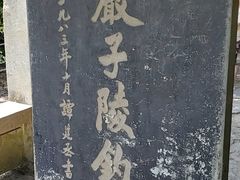 嚴子陵釣
一九八三年十月譚建丞書